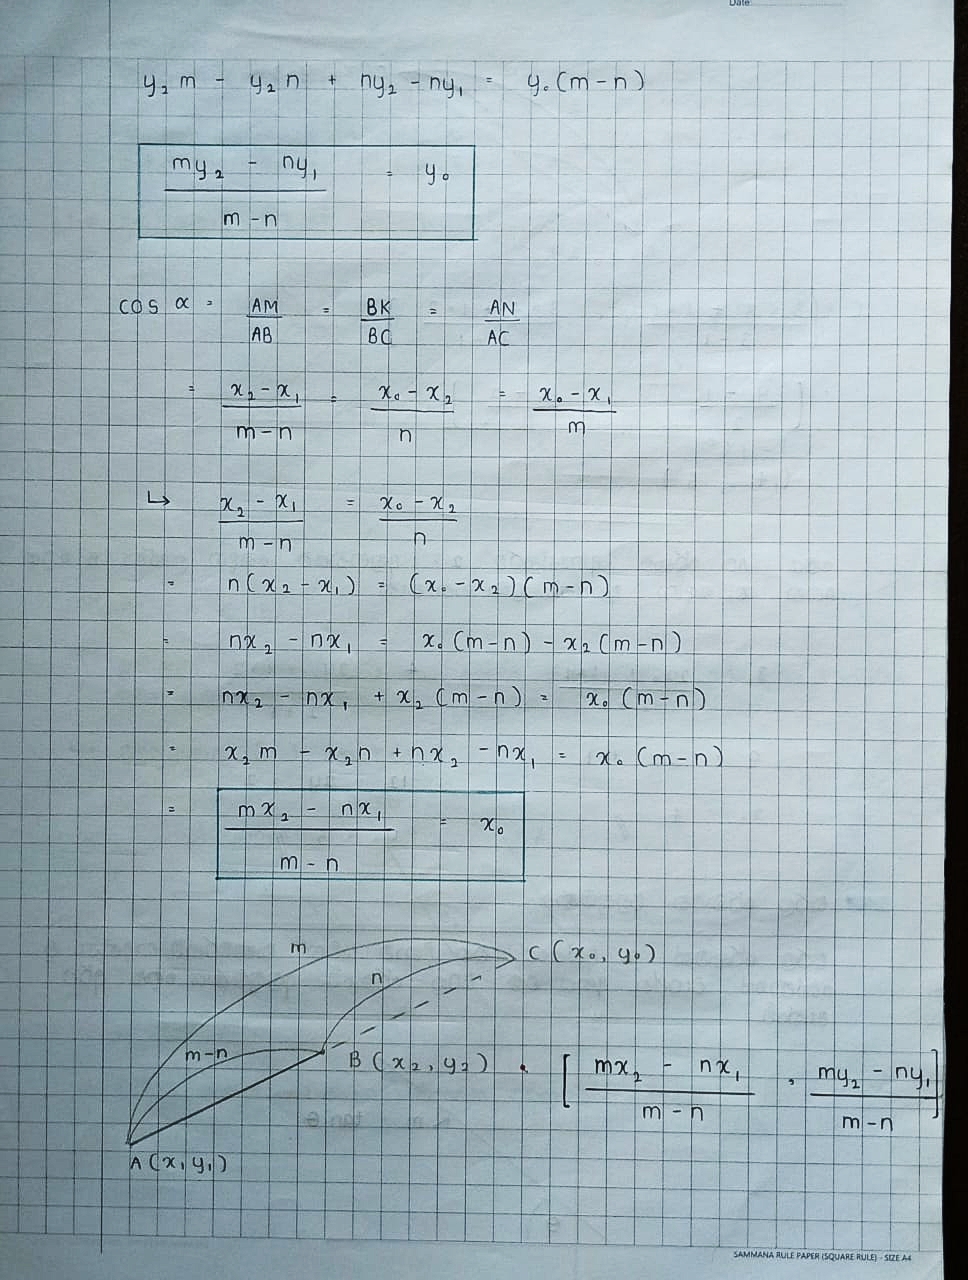 Date:
y₂m - y₂n + ny₂ - ny₁ = y₀(m-n)
my₂ - ny₁ / m-n = y₀
cos α = AM/AB = BK/BC = AN/AC
= x₂-x₁/m-n = x₀-x₂/n = x₀-x₁/m
↳ x₂-x₁/m-n = x₀-x₂/n
= n(x₂-x₁) = (x₀-x₂)(m-n)
= nx₂ - nx₁ = x₀(m-n) - x₂(m-n)
= nx₂ - nx₁ + x₂(m-n) = x₀(m-n)
= x₂m - x₂n + nx₂ - nx₁ = x₀(m-n)
= mx₂ - nx₁ / m-n = x₀
m
C(x₀, y₀)
n
m-n
B(x₂, y₂) • [mx₂ - nx₁ / m-n , my₂ - ny₁ / m-n]
A(x₁ y₁)
SAMMANA RULE PAPER (SQUARE RULE) - SIZE A4